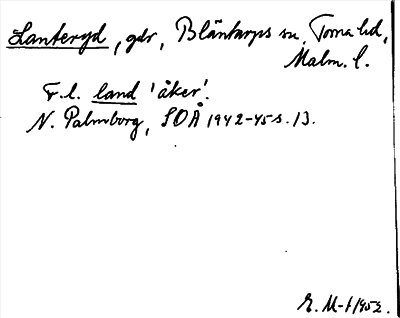 Lanteryd, gdr, Bläntarps sn, Torna hd,
Malm. l.
F.l. land 'åker'.
N. Palmborg, SOÅ 1942-45 s. 13.
E. M-t 1952.